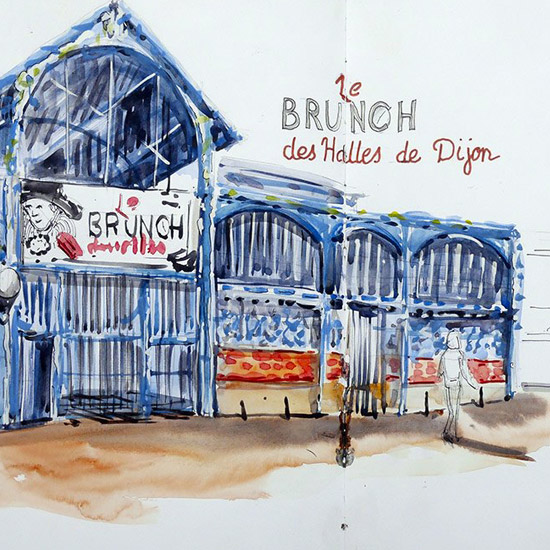 Le
BRUNCH
des Halles de Dijon
Le
BRUNCH